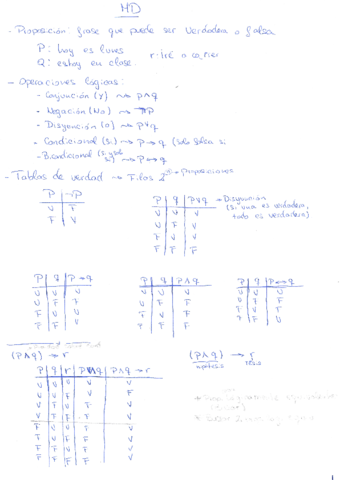 MD
- Proposición: frase que puede ser verdadera o falsa
P: hoy es lunes
r: iré a correr
Q: estoy en clase.
- Operaciones lógicas:
- Conjunción (Y) ~> p∧q
- Negación (No) ~> ¬P
- Disyunción (o) ~> p∨q
- Condicional (Si) ~> p→q (solo falsa si
- Bicondicional (si y solo si) ~> p↔q
- Tablas de verdad → Filas 2
P | ¬P
V | F
F | V
P | q | P∨q → Disyunción
V V V (Si una es verdadera,
V F V todo es verdadero)
F V V
F F F
P | q | P→q
V V V
V F F
F V V
F F V
P | q | P∧q
V V V
V F F
F V F
F F F
P | q | P↔q
V V V
V F F
F V F
F F V
(P∧q) → r
(P∧q) → r
P | q | r | P∧q | P∧q → r
V V V V V
V V F V F
V F V F V
V F F F V
F V V F V
F V F F V
F F V F V
F F F F V
1